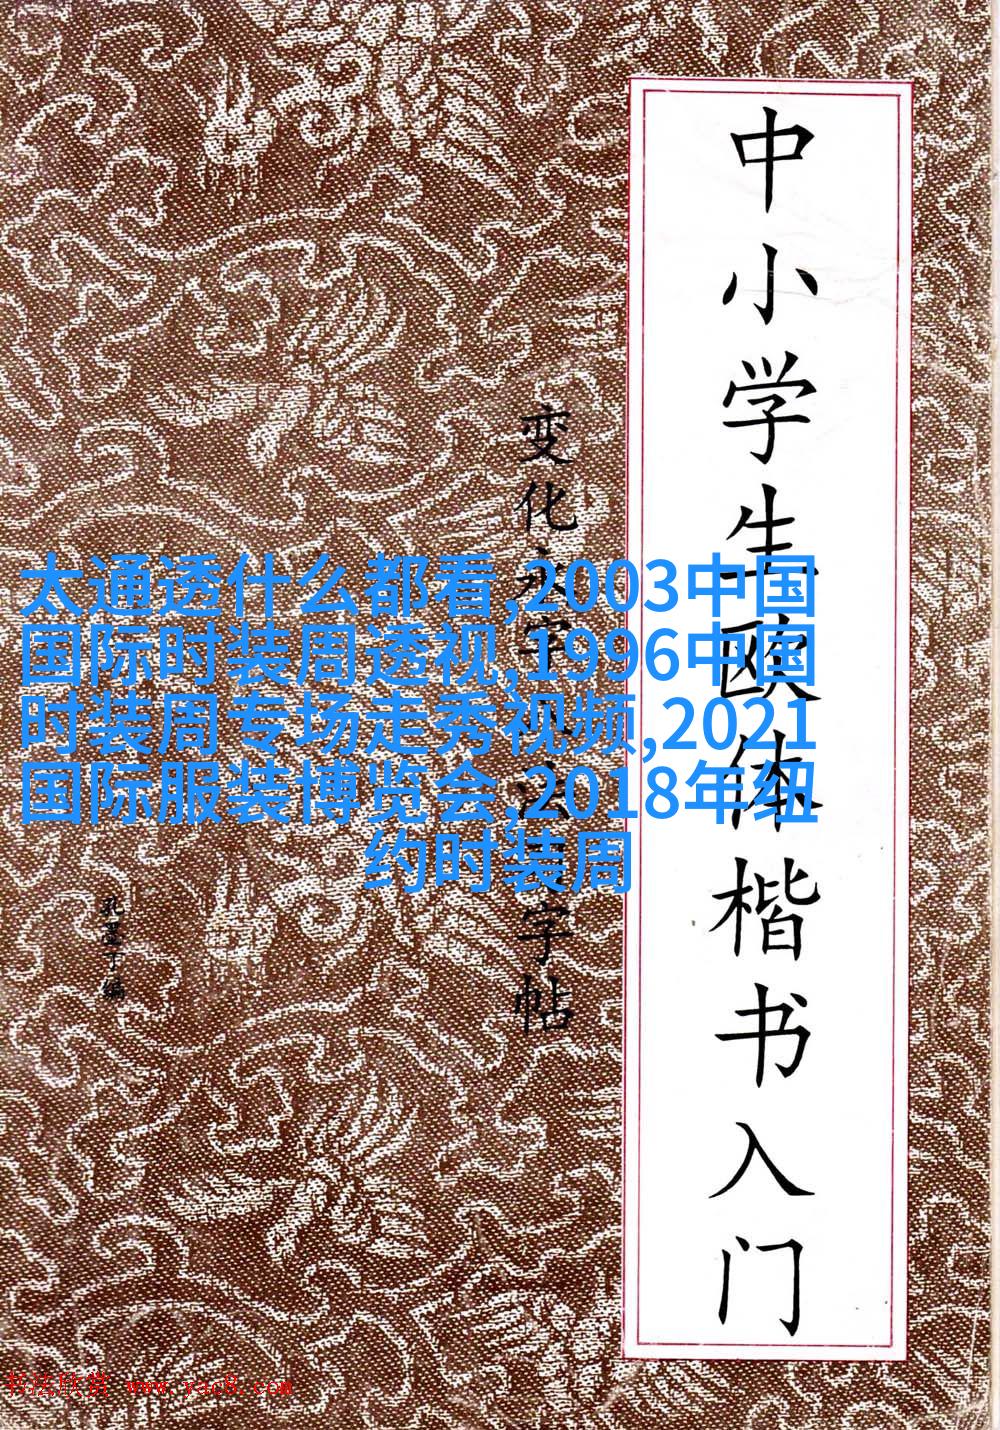 中小学生欧体楷书入门
变化永字八法大字帖
孔墨丁编
太通透什么都看,2003中国
国际时装周透视,1996中国
时装周专场走秀视频,2021
国际服装博览会,2018年纽
约时装周
书法欣赏 www.yac8.com